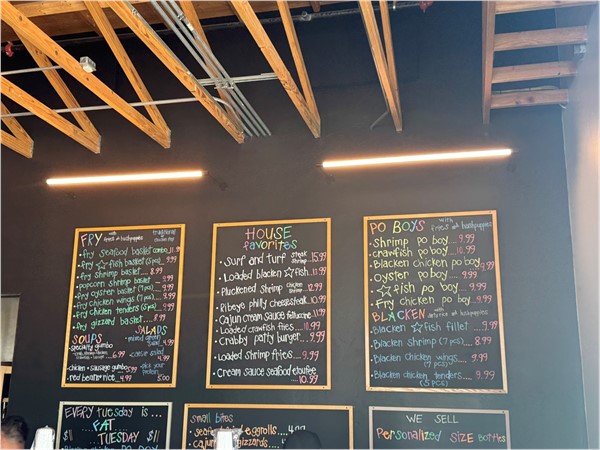 FRY with fries & hushpuppies
traditional
fry seafood basket combo 11.99
fry ☆ fish basket (5pcs) 9.99
fry shrimp basket ... 8.99
popcorn shrimp basket 9.99
fry oyster basket (7pcs) ... 9.99
fry chicken wings (7pcs) ... 9.99
fry chicken tenders (5pcs) ... 9.99
fry gizzard basket ... 8.99
SOUPS
specialty gumbo
chicken & sausage gumbo 5.99
red beans & rice ... 4.99
SALADS
mixed green salad 4.99
caesar salad 4.99
pick your protein 5.00
HOUSE
favorites
Surf and turf steak shrimp 15.99
Loaded blacken ☆ fish .. 11.99
Pluckened shrimp chicken shrimp 12.99
Ribeye philly cheesesteak 10.99
Cajun cream sauce fettuccine 11.99
Loaded crawfish fries .... 11.99
Crabby patty burger .... 9.99
Loaded shrimp fries .... 9.99
Cream sauce seafood etouffee
.... 10.99
PO BOYS with fries & hushpuppies
shrimp po boy .... 9.99
crawfish po boy .... 10.99
Blacken chicken po boy 9.99
oyster po boy ..... 9.99
☆ fish po boy .... 9.99
Fry chicken po boy .. 9.99
BLACKEN with fries & rice
Blacken ☆ fish fillet .. 9.99
Blacken shrimp (7pcs) 8.99
Blacken chicken wings
(7pcs) ..... 9.99
Blacken chicken tenders
(5pcs) ..... 9.99
EVERY Tuesday is ...
FAT
$11 TUESDAY $11
small bites
eggrolls ... 4.99
cajun gizzards
WE SELL
Personalized SIZE Bottles